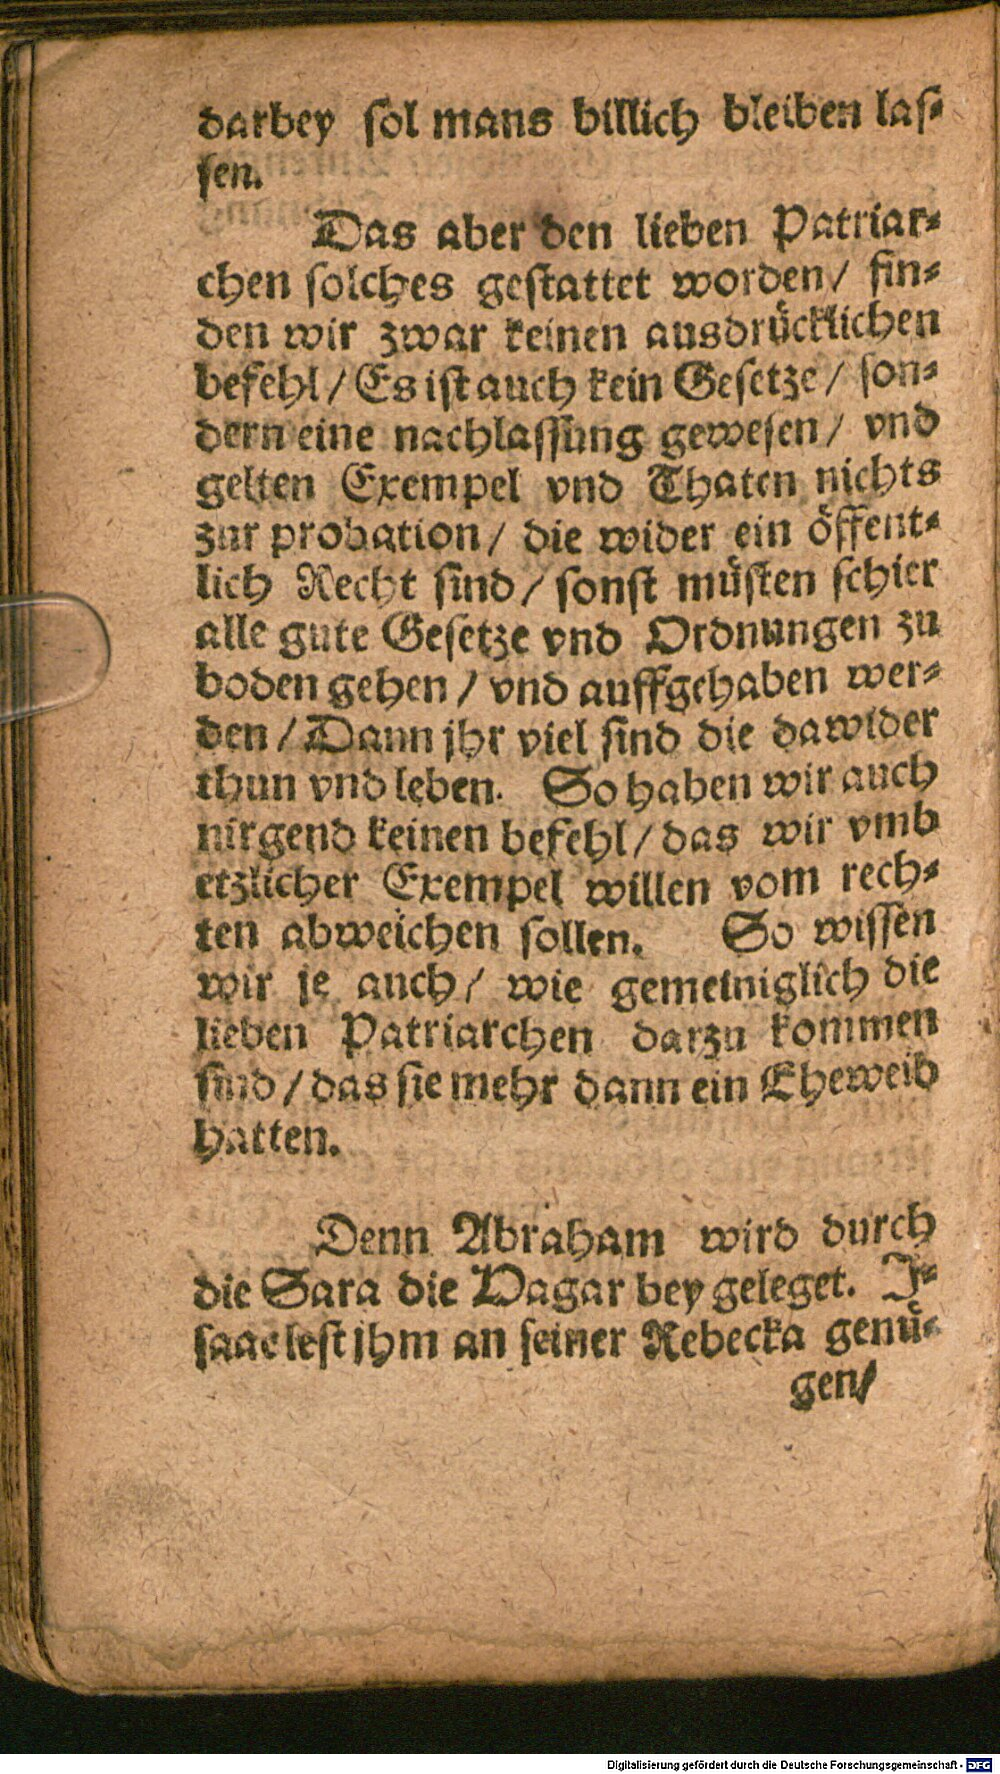 darbey sol mans billich bleiben las-
sen.
Das aber den lieben Patriar-
chen solches gestattet worden/ fin-
den wir zwar keinen ausdrücklichen
befehl/ Es ist auch kein Gesetze/ son-
dern eine nachlassung gewesen/ vnd
gelten Exempel vnd Thaten nichts
zur probation/ die wider ein öffent-
lich Recht sind/ sonst müsten schier
alle gute Gesetze vnd Ordnungen zu
boden gehen/ vnd auffgehaben wer-
den/ Dann jhr viel sind die dawider
thun vnd leben. So haben wir auch
nirgend keinen befehl/ das wir vmb
etzlicher Exempel willen vom rech-
ten abweichen sollen. So wissen
wir je auch/ wie gemeiniglich die
lieben Patriarchen darzu kommen
sind/ das sie mehr dann ein Eheweib
hatten.
Denn Abraham wird durch
die Sara die Hagar bey geleget. I-
saac lest jhm an seiner Rebecka genü-
gen/
Digitalisierung gefördert durch die Deutsche Forschungsgemeinschaft - DFG